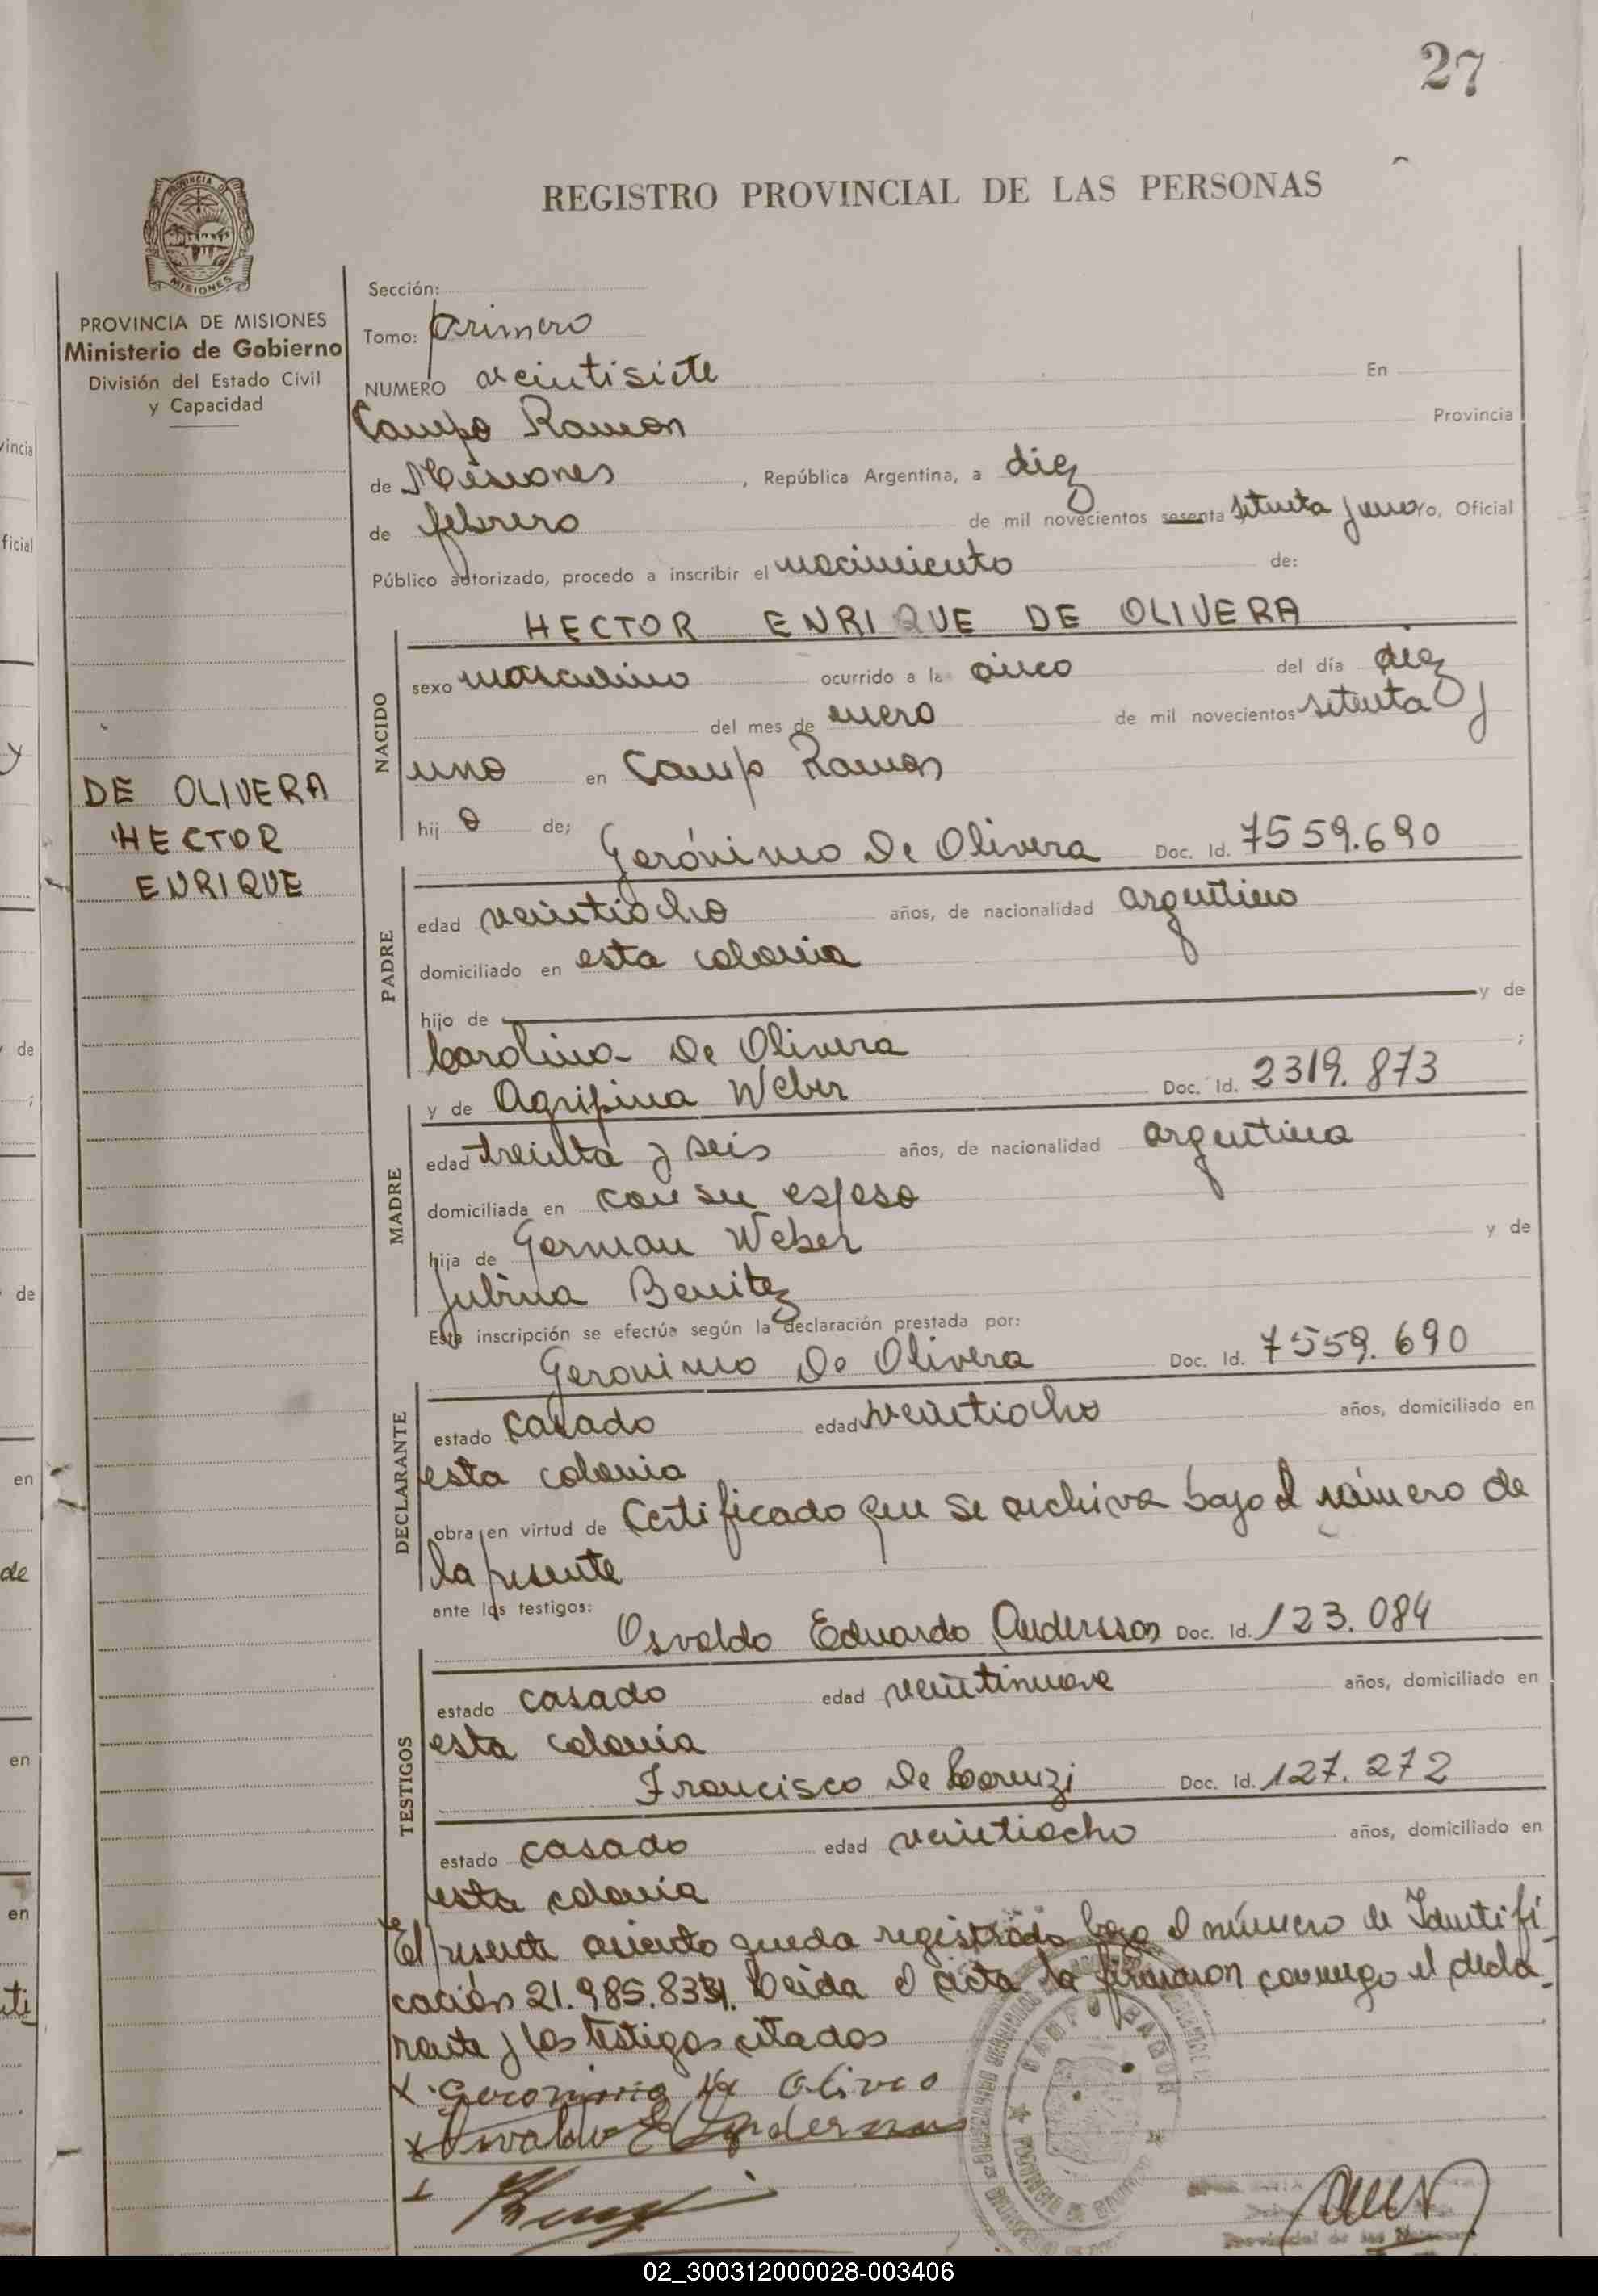 27
REGISTRO PROVINCIAL DE LAS PERSONAS
PROVINCIA DE
MISIONES
PROVINCIA DE MISIONES
Ministerio de Gobierno
División del Estado Civil
y Capacidad
DE OLIVERA
HECTOR
ENRIQUE
Sección:
Tomo: primero
NUMERO veintisiete En
Campo Ramon Provincia
de Misiones , República Argentina, a diez
de febrero de mil novecientos sesenta setenta y uno Yo, Oficial
Público autorizado, procedo a inscribir el nacimiento de:
HECTOR ENRIQUE DE OLIVERA
NACIDO
sexo masculino ocurrido a la cinco del día diez
del mes de enero de mil novecientos setenta y
uno en Camp Ramon
hij o de;
Gerónimo De Olivera Doc. Id. 7559.690
PADRE
edad veintiocho años, de nacionalidad argentino
domiciliado en esta colonia
hijo de y de
Carolina De Olivera ;
y de Agripina Weber Doc. Id. 2319.873
MADRE
edad treinta y seis años, de nacionalidad argentina
domiciliada en con su esposo
hija de German Weber y de
Julvina Benitez
Esta inscripción se efectúa según la declaración prestada por:
Geronimo De Olivera Doc. Id. 7559.690
DECLARANTE
estado casado edad veintiocho años, domiciliado en
esta colonia
obra en virtud de Certificado que se archiva bajo el número de
la presente
ante los testigos:
Osvaldo Eduardo Andersson Doc. Id. 123.084
TESTIGOS
estado casado edad veintinueve años, domiciliado en
esta colonia
Francisco De Lorenzi Doc. Id. 127.272
estado casado edad veintiocho años, domiciliado en
esta colonia
El presente asiento queda registrado bajo el número de Identifi
cación 21.985.83 Leida el acta la firmaron conmigo el decla
rante y los testigos citados
Geronimo De Olivera
Osvaldo E Andersson
CAMPO RAMON
02_300312000028-003406